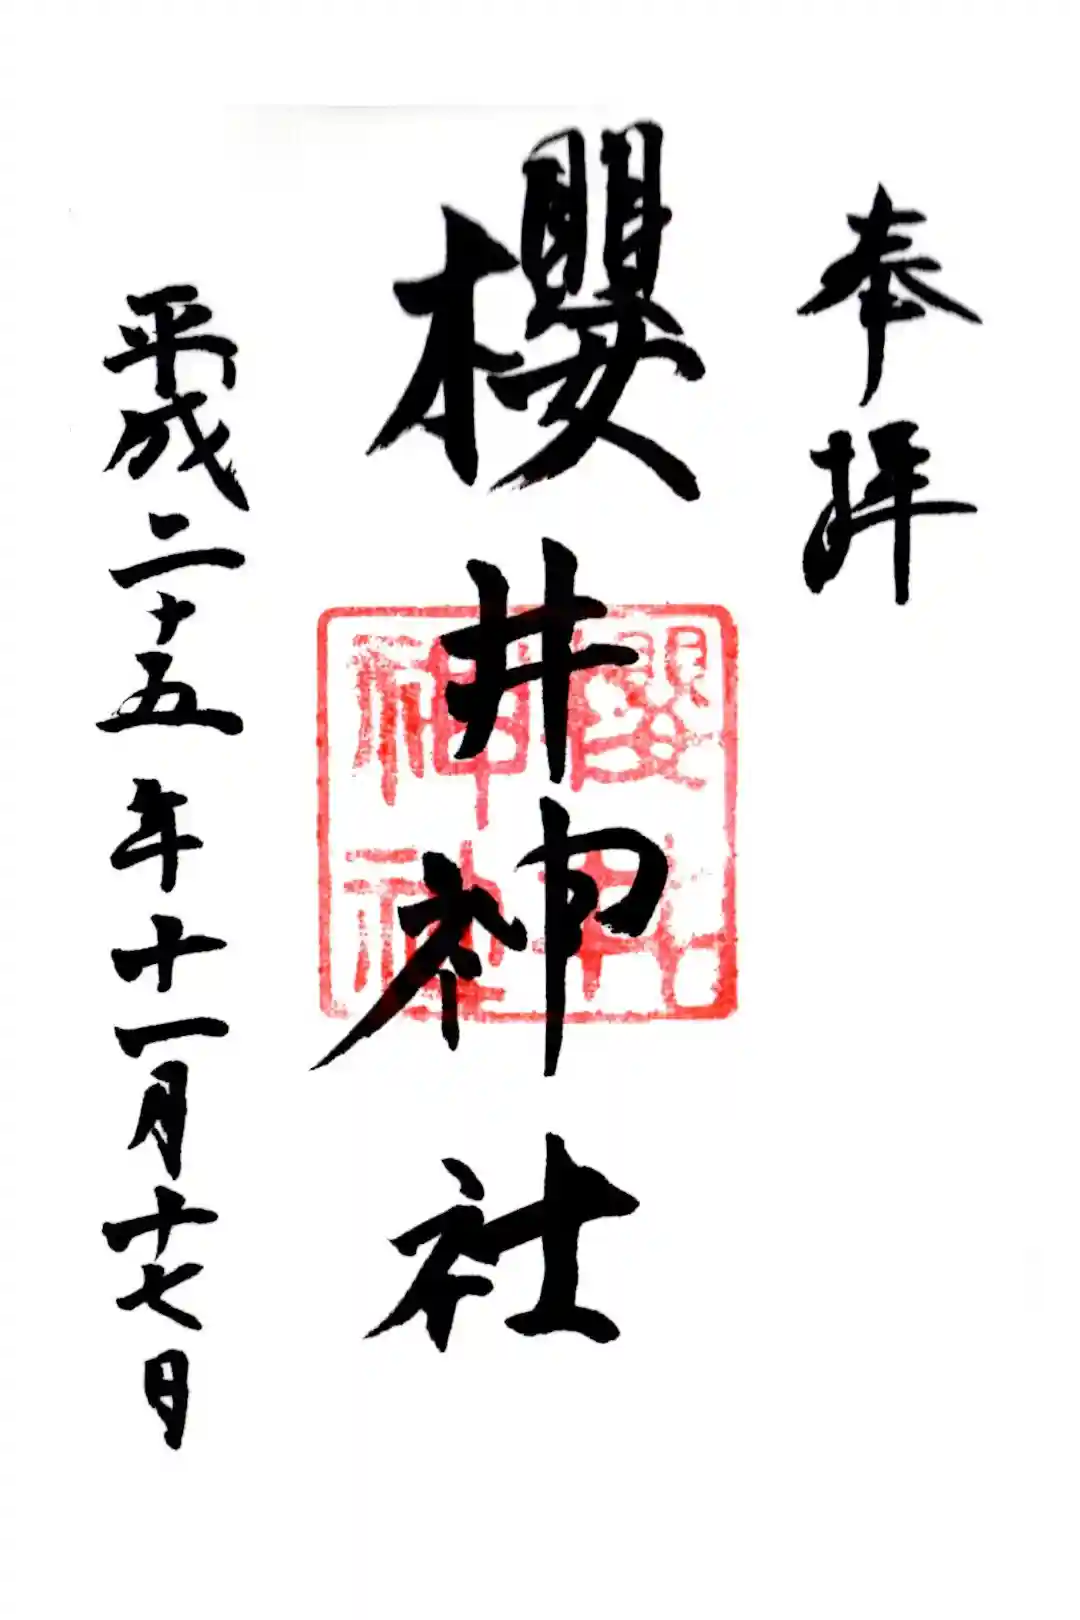 奉拝
櫻井神社
櫻井
神社
平成二十五年十一月十七日